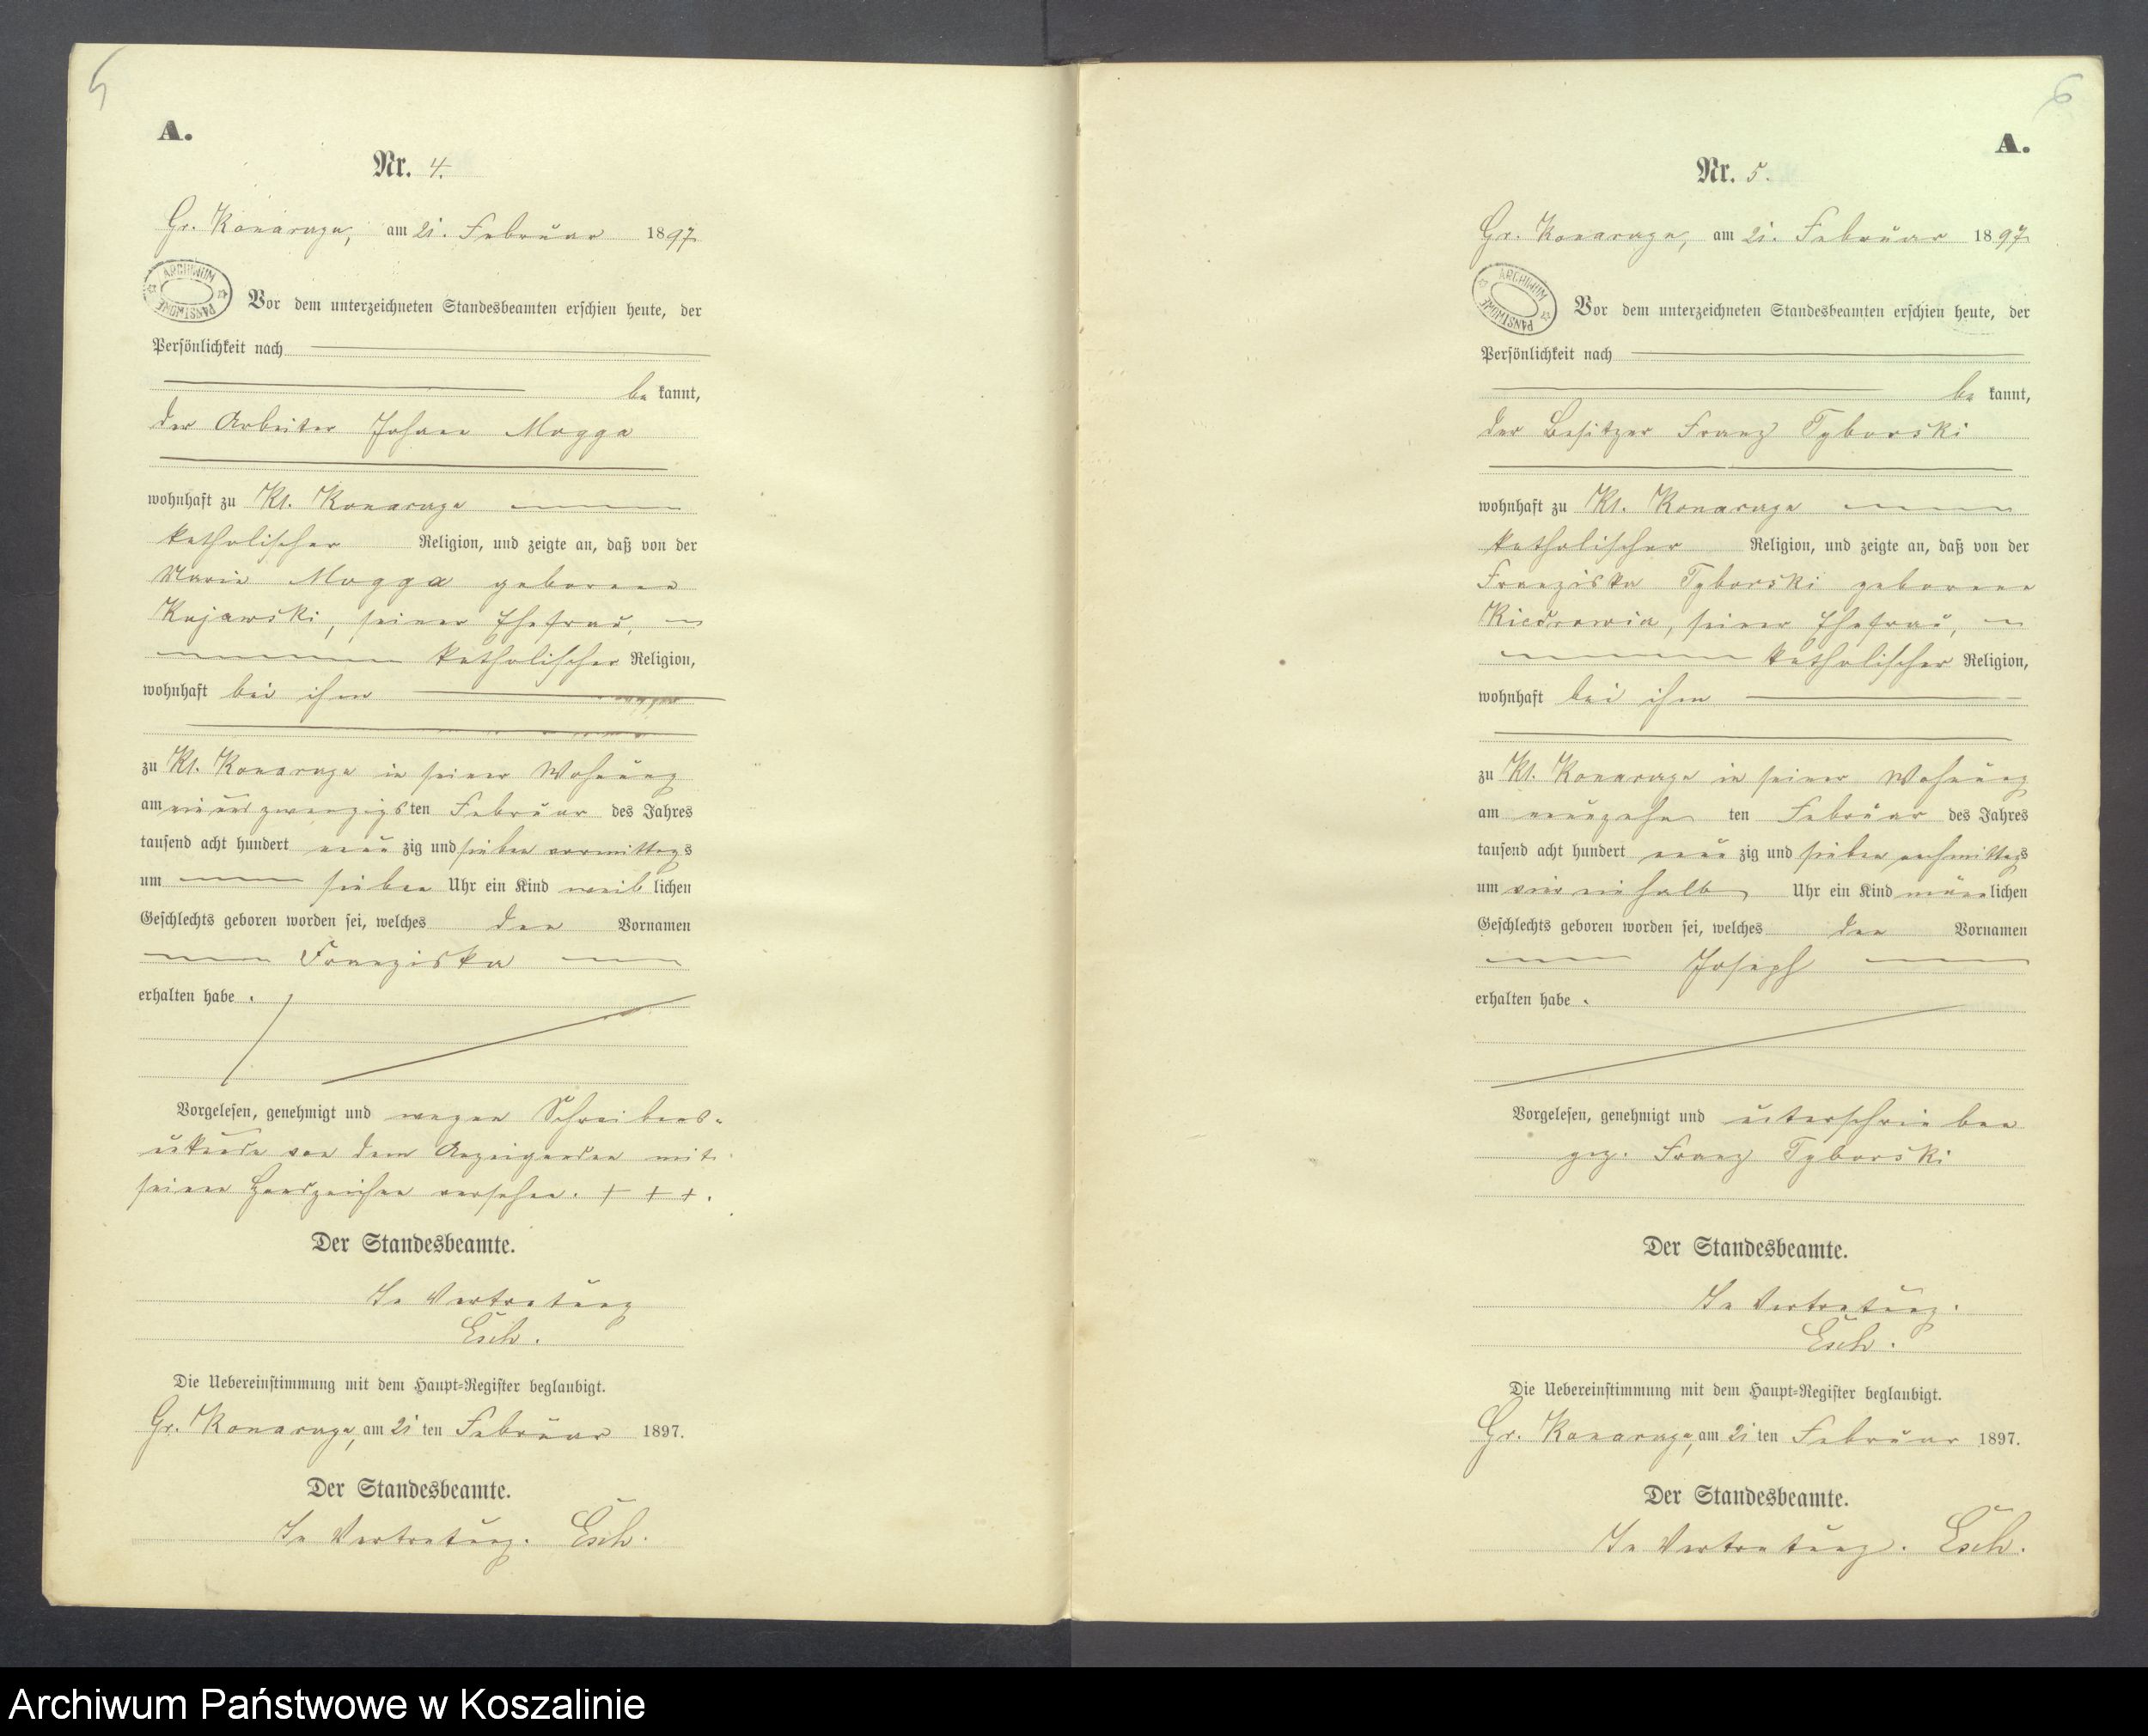 5
A.
Nr. 4.
Gr. Konarzyn, am 21. Februar 1897
ARCHIWUM PAŃSTWOWE
Vor dem unterzeichneten Standesbeamten erschien heute, der
Persönlichkeit nach
be kannt,
der Arbeiter Johann Mogga
wohnhaft zu Kl. Konarzyn
katholischer Religion, und zeigte an, daß von der
Maria Mogga geborene
Kujawski, seiner Ehefrau,
katholischer Religion,
wohnhaft bei ihm
zu Kl. Konarzyn in seiner Wohnung
am einundzwanzigsten Februar des Jahres
tausend acht hundert neun zig und sieben vormittags
um sieben Uhr ein Kind weib lichen
Geschlechts geboren worden sei, welches den Vornamen
Franziska
erhalten habe.
Vorgelesen, genehmigt und wegen Schreibens-
unkunde von dem Anzeigenden mit
seinen Handzeichen versehen. + + +.
Der Standesbeamte.
In Vertretung
Esch.
Die Uebereinstimmung mit dem Haupt-Register beglaubigt.
Gr. Konarzyn, am 21 ten Februar 1897.
Der Standesbeamte.
In Vertretung. Esch.
6
A.
Nr. 5.
Gr. Konarzyn, am 21. Februar 1897
ARCHIWUM PAŃSTWOWE
Vor dem unterzeichneten Standesbeamten erschien heute, der
Persönlichkeit nach
be kannt,
der Besitzer Franz Tyborski
wohnhaft zu Kl. Konarzyn
katholischer Religion, und zeigte an, daß von der
Franziska Tyborski geborene
seiner Ehefrau,
katholischer Religion,
wohnhaft bei ihm
zu Kl. Konarzyn in seiner Wohnung
am neunzehn ten Februar des Jahres
tausend acht hundert neun zig und sieben nachmittags
um vier ein halb Uhr ein Kind männlichen
Geschlechts geboren worden sei, welches den Vornamen
Joseph
erhalten habe.
Vorgelesen, genehmigt und unterschrieben
gez. Franz Tyborski
Der Standesbeamte.
In Vertretung.
Esch.
Die Uebereinstimmung mit dem Haupt-Register beglaubigt.
Gr. Konarzyn, am 21 ten Februar 1897.
Der Standesbeamte.
In Vertretung. Esch.
Archiwum Państwowe w Koszalinie